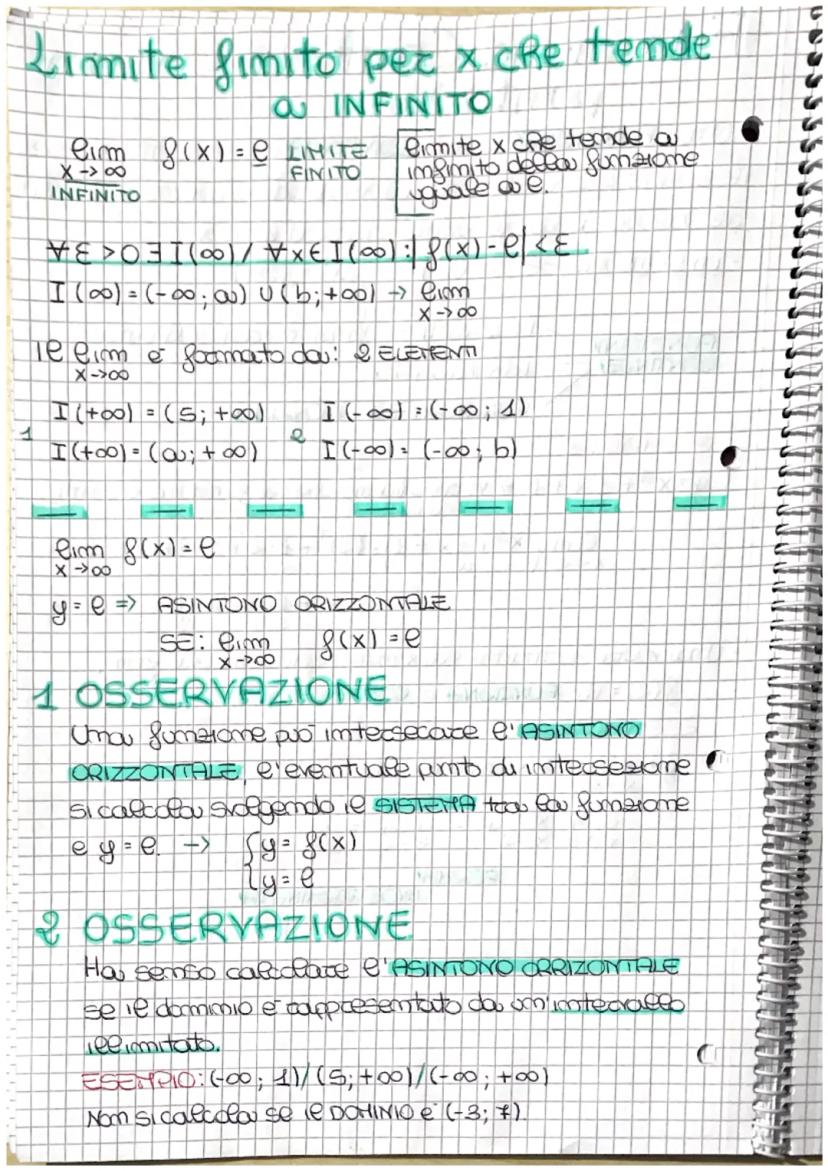 Limite finito per x che tende
a INFINITO
lim f(x) = l LIMITE
x→∞ FINITO
INFINITO
limite x che tende a
infinito della funzione
uguale a l.
∀ε>0 ∃I(∞) / ∀x∈I(∞):|f(x)-l|<ε
I(∞) = (-∞; a) U (b; +∞) → lim
x→∞
il lim è formato da: 2 ELEMENTI
x→∞
I(+∞) = (5; +∞) I(-∞) = (-∞; 1)
1 I(+∞) = (a; +∞) 2 I(-∞) = (-∞; b)
lim f(x) = l
x→∞
y = l => ASINTONO ORIZZONTALE
SE: lim f(x) = l
x→∞
1 OSSERVAZIONE
Una funzione può intersecare l'ASINTONO
ORIZZONTALE, l'eventuale punto di intersezione
si calcola svolgendo il SISTEMA tra la funzione
e y = l. → {y = f(x)
{y = l
2 OSSERVAZIONE
Ha senso calcolare l'ASINTONO ORRIZONTALE
se il dominio è rappresentato da un'intervallo
illimitato.
ESEMPIO: (-∞; 1)/(5; +∞)/(-∞; +∞)
Non si calcola se il DOMINIO è (-3; 7).